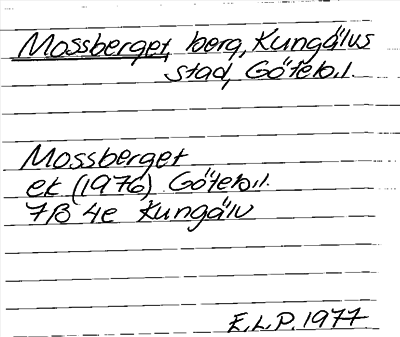 Mossberget, berg, Kungälvs
stad, Göteb.l.
Mossberget
ek (1976) Göteb.l.
7B 4e Kungälv
E.L.P. 1977